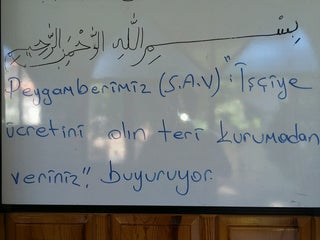 بِسْمِ اللهِ الرَّحْمٰنِ الرَّحِيمِ
Peygamberimiz (S.A.V) "İşçiye
ücretini alın teri kurumadan
veriniz". buyuruyor.